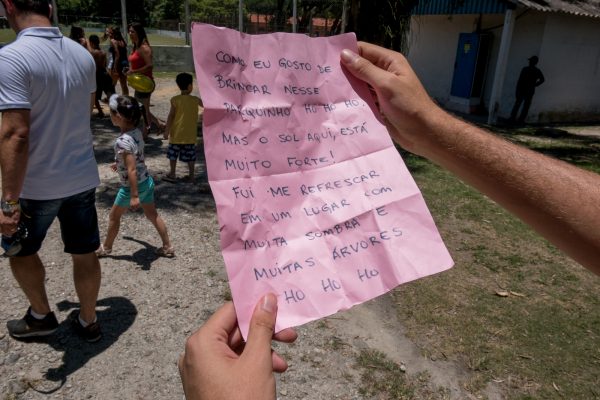 COMO EU GOSTO DE
BRINCAR NESSE
PARQUINHO HO HO HO,
MAS O SOL AQUI, ESTÁ
MUITO FORTE!
FUI ME REFRESCAR
EM UM LUGAR COM
MUITA SOMBRA E
MUITAS ÁRVORES
HO HO HO